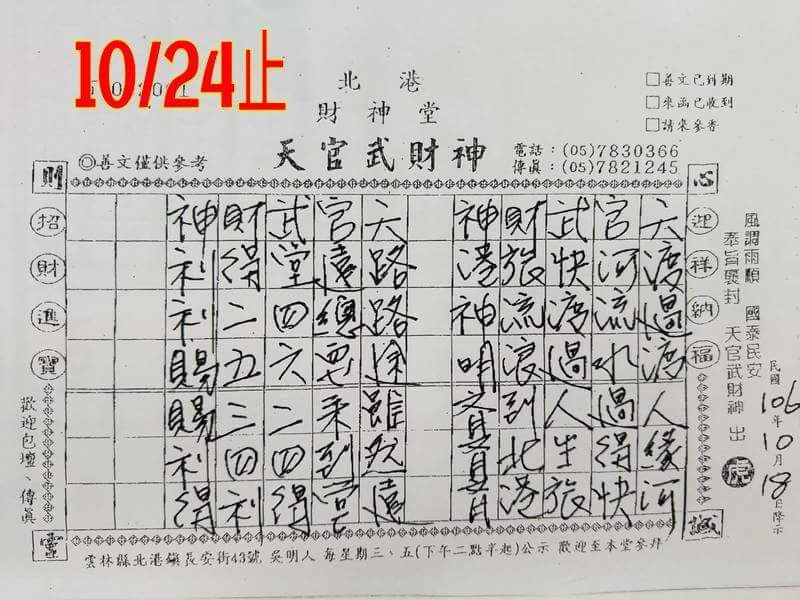 10/24止
北港
財神堂
天官武財神
◎善文僅供參考
電話：(05)7830366
傳眞：(05)7821245
□善文已到期
□來函已收到
□請來參香
心
迎祥納福
誠
則
招財進寶
靈
天渡過渡人緣河
官河流水過得快
武快渡過人生旅
財旅流浪到北港
神港神明
天路路途雖然遠
官遠總要來到堂
武堂四六二四得
財得二五三四利
神利利賜賜利得
風調雨順 國泰民安
奉旨褒封 天官武財神 出
民國106年10月18日降示
歡迎包壇、傳眞
雲林縣北港鎮長安街43號 吳明人 每星期三、五(下午二點半起)公示 歡迎至本堂參拜